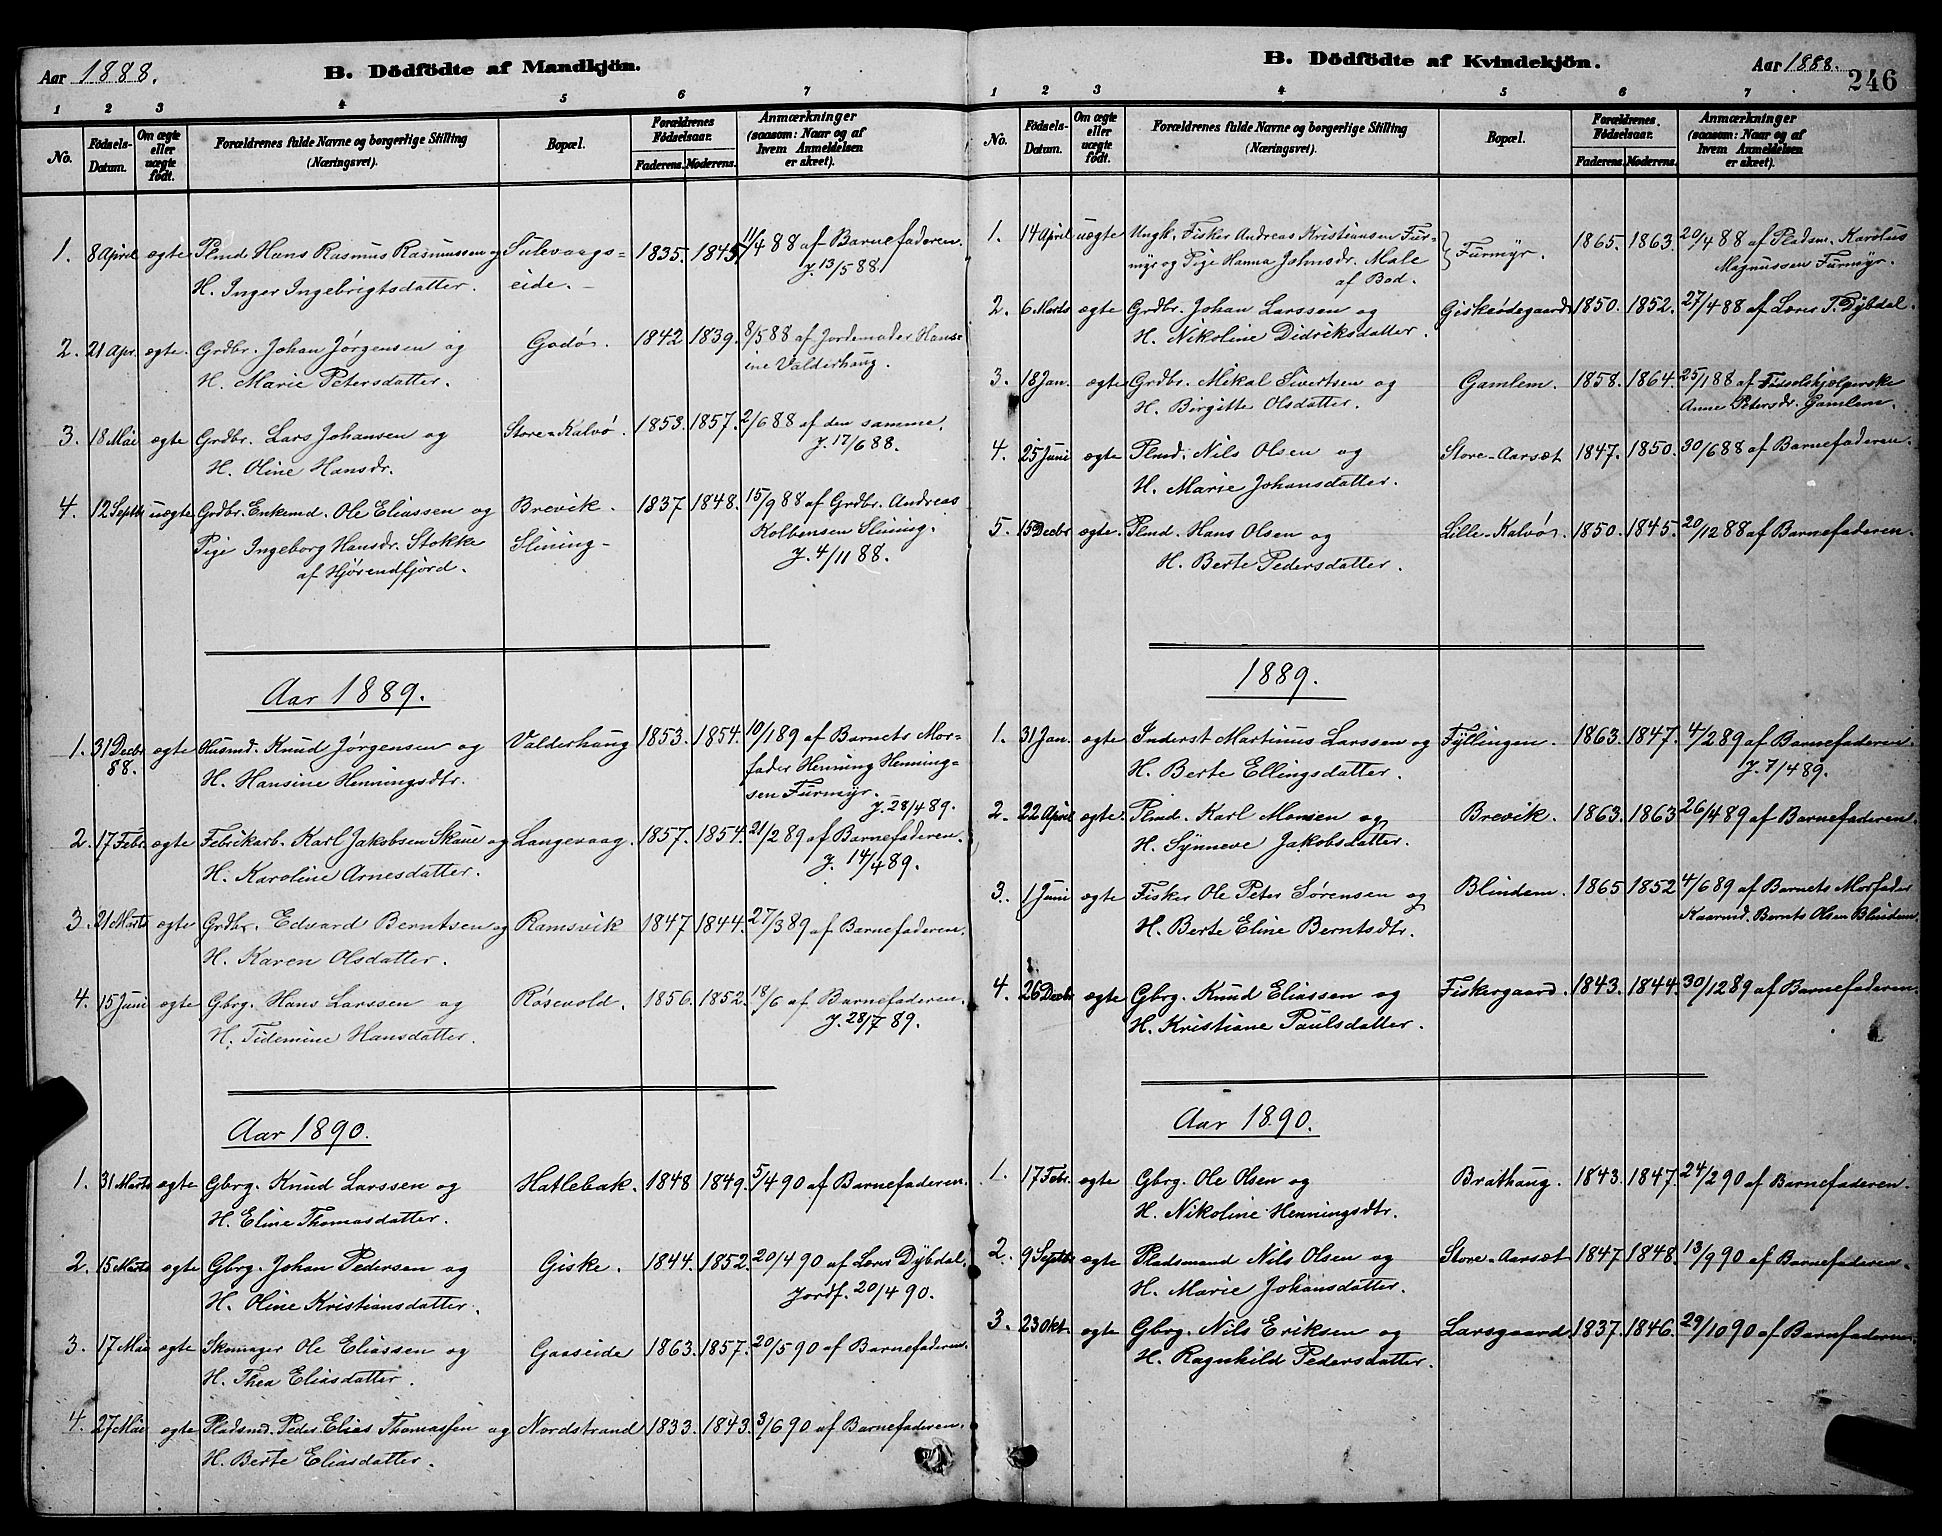 Aar 1888.
B. Dödfödte af Mandkjön.
1 2 3 4 5 6 7
No.
Födsels-Datum.
Om ægte eller uægte født.
Forældrenes fulde Navne og borgerlige Stilling (Næringsvei).
Bopæl.
Forældrenes Födselsaar.
Faderens. Moderens.
Anmærkninger (saasom: Naar og af hvem Anmeldelsen er skeet).
1. 8 April ægte Plmd Hans Rasmus Rasmussen og Sulevaags- 1835. 1845. 11/4 88 af Barnefaderen.
H. Inger Ingebrigtsdatter. eide. J. 13/5 88.
2. 21 Apr. ægte. Grdbr. Johan Jørgensen og Godø. 1842 1839. 8/5 88 af Jordemoder Hans-
H. Marie Petersdatter. ine Valderhaug.
3. 18 Mai ægte Grdbr. Lars Johansen og Store-Kalvø. 1853. 1857. 2/6 88 af den samme.
H. Oline Hansdr. J. 17/6 88.
4. 12 Septbr uægte Grdbr. Enkemd. Ole Eliassen og Brevik. 1837 1848. 15/9 88 af Grdbr. Andreas
Pige Ingeborg Hansdr. Stokke Slining- Kolbensen Slining.
af Hjørendfjord. J. 4/11 88.
Aar 1889.
1. 31 Decbr ægte Husmd. Knud Jørgensen og Valderhaug 1853. 1854. 10/1 89 af Barnets Mor-
88. H. Hansine Henningsdtr. fader Henning Henning-
sen Furmyr.
J. 28/4 89.
2. 17 Febr. ægte Fabrikarb. Karl Jakobsen Skaue og Langevaag. 1857. 1854. 21/2 89 af Barnefaderen.
H. Karoline Arnesdatter. J. 14/4 89.
3. 21 Marts ægte Grdbr. Edvard Berntsen og Ramsvik 1847 1844. 27/3 89 af Barnefaderen.
H. Karen Olsdatter.
4. 15 Juni ægte Gbrg. Hans Larssen og Røsevold. 1856. 1852. 18/6 af Barnefaderen.
H. Tidemine Hansdatter. J. 28/7 89.
Aar 1890.
1. 31 Marts ægte Gbrg. Knud Larssen og Hatlebak. 1848 1849. 5/4 90 af Barnefaderen.
H. Eline Thomasdatter.
2. 15 Marts ægte Gbrg. Johan Pedersen og Giske. 1844. 1852. 20/4 90 af Lærer Dybdal.
H. Oline Kristiansdatter. Jordf. 20/4 90.
3. 17 Mai ægte Skomager Ole Eliassen og Gaaseide 1863. 1857. 20/5 90 af Barnefaderen.
H. Thea Eliasdatter.
4. 27 Mai ægte Pladsmd. Peder Elias Thomassen og Nordstrand 1833. 1843. 3/6 90 af Barnefaderen.
H. Berte Eliasdatter.
B. Dödfödte af Kvindekjön.
Aar 1888.
246
1 2 3 4 5 6 7
No.
Födsels-Datum.
Om ægte eller uægte født.
Forældrenes fulde Navne og borgerlige Stilling (Næringsvei).
Bopæl.
Forældrenes Födselsaar.
Faderens. Moderens.
Anmærkninger (saasom: Naar og af hvem Anmeldelsen er skeet).
1. 14 April uægte Ungk. Fisker Andreas Kristiansen Fur- Furmyr. 1865. 1863. 20/4 88 af Pladsm. Karolus
myr og Pige Hanna Johnsdr. Male Magnussen Furmyr.
af Bod.
2. 6 Marts ægte Grdbr. Johan Larssen og Giskeødegaard 1850. 1852. 27/4 88 af Lærer T. Dybdal.
H. Nikoline Didriksdatter.
3. 18 Jan. ægte Grdbr. Mikal Sivertsen og Gamlem. 1858. 1864. 25/1 88 af Fødselshjælperske
H. Birgitte Olsdatter. Anne Petersdr. Gamlem.
4. 25 Juni ægte Plmd. Nils Olsen og Store-Aarsæt 1847. 1850. 30/6 88 af Barnefaderen.
H. Marie Johansdatter.
5. 15 Decbr ægte. Plmd. Hans Olsen og Lille-Kalvø. 1850. 1845. 20/12 88 af Barnefaderen.
H. Berte Pedersdatter.
1889.
1. 31 Jan. ægte Inderst Martinus Larssen og Fyllingen. 1863. 1847. 4/2 89 af Barnefaderen.
H. Berte Ellingsdatter. J. 7/4 89.
2. 22 April ægte Plmd. Karl Monsen og Brevik. 1863. 1863 26/4 89 af Barnefaderen.
H. Synneve Jakobsdatter.
3. 1 Juni ægte Fisker Ole Peter Sørensen og Blindem. 1865 1852 4/6 89 af Barnets Morfader
H. Berte Eline Berntsdtr. Kaarmd. Bernts Olsen Blindem.
4. 26 Decbr ægte Gbrg. Knud Eliassen og Fiskergaard. 1843. 1844. 30/12 89 af Barnefaderen.
H. Kristiane Paulsdatter.
Aar 1890.
1. 17 Febr. ægte Gbrg. Ole Olsen og Brathaug. 1843. 1847. 24/2 90 af Barnefaderen.
H. Nikoline Henningsdtr.
2. 9 Septbr ægte Pladsmand Nils Olsen og Store-Aarsæt 1847 1848. 13/9 90 af Barnefaderen.
H. Marie Johansdatter.
3. 23 Okt. ægte Gbrg. Nils Eriksen og Larsgaard 1837. 1846. 29/10 90 af Barnefaderen.
H. Ragnhild Pedersdatter.